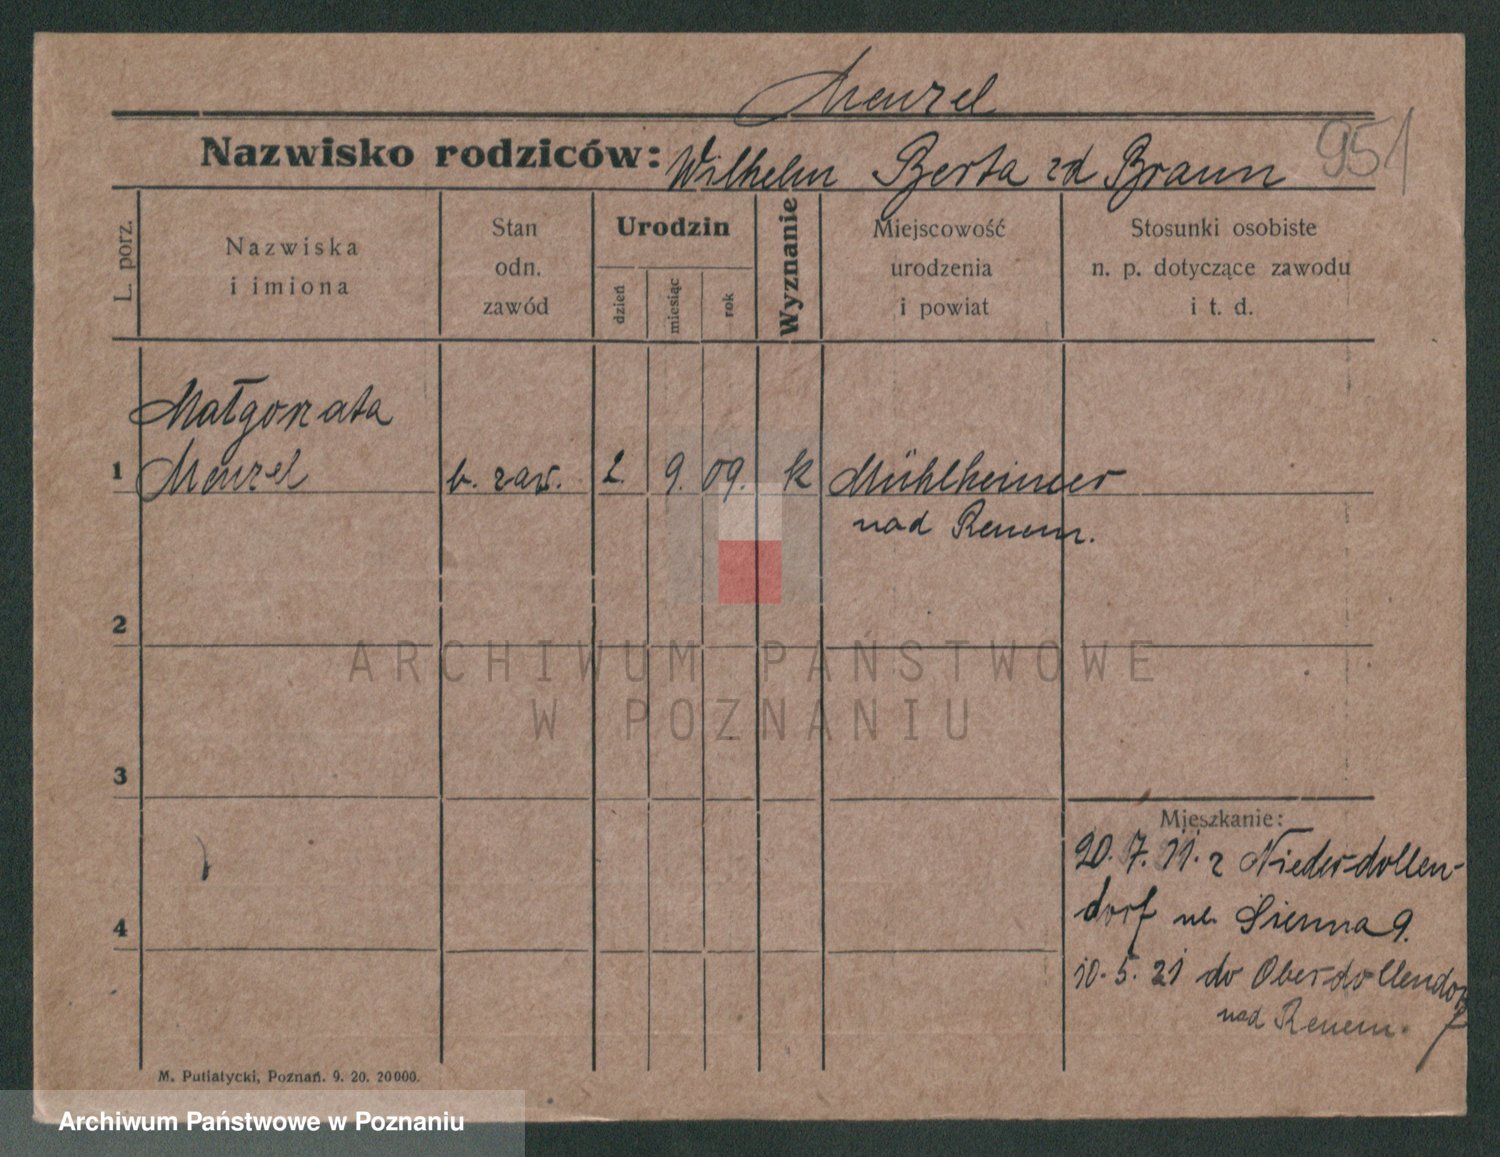 Menzel
Nazwisko rodziców: Wilhelm Berta zd Braun 951
L. porz.
Nazwiska i imiona
Stan odn. zawód
Urodzin
dzień
miesiąc
rok
Wyznanie
Miejscowość urodzenia i powiat
Stosunki osobiste n. p. dotyczące zawodu i t. d.
Małgorzata
1 Menzel b. zaw. 2. 9. 09. k Mühlheimer
nad Renem.
2
ARCHIWUM PAŃSTWOWE
W POZNANIU
3
Mieszkanie:
20. 7. 11. z Niederdollen-
dorf ul. Sienna 9.
4
10. 5. 21 do Oberdollendorf
nad Renem.
M. Putiatycki, Poznań. 9. 20. 20000.
Archiwum Państwowe w Poznaniu